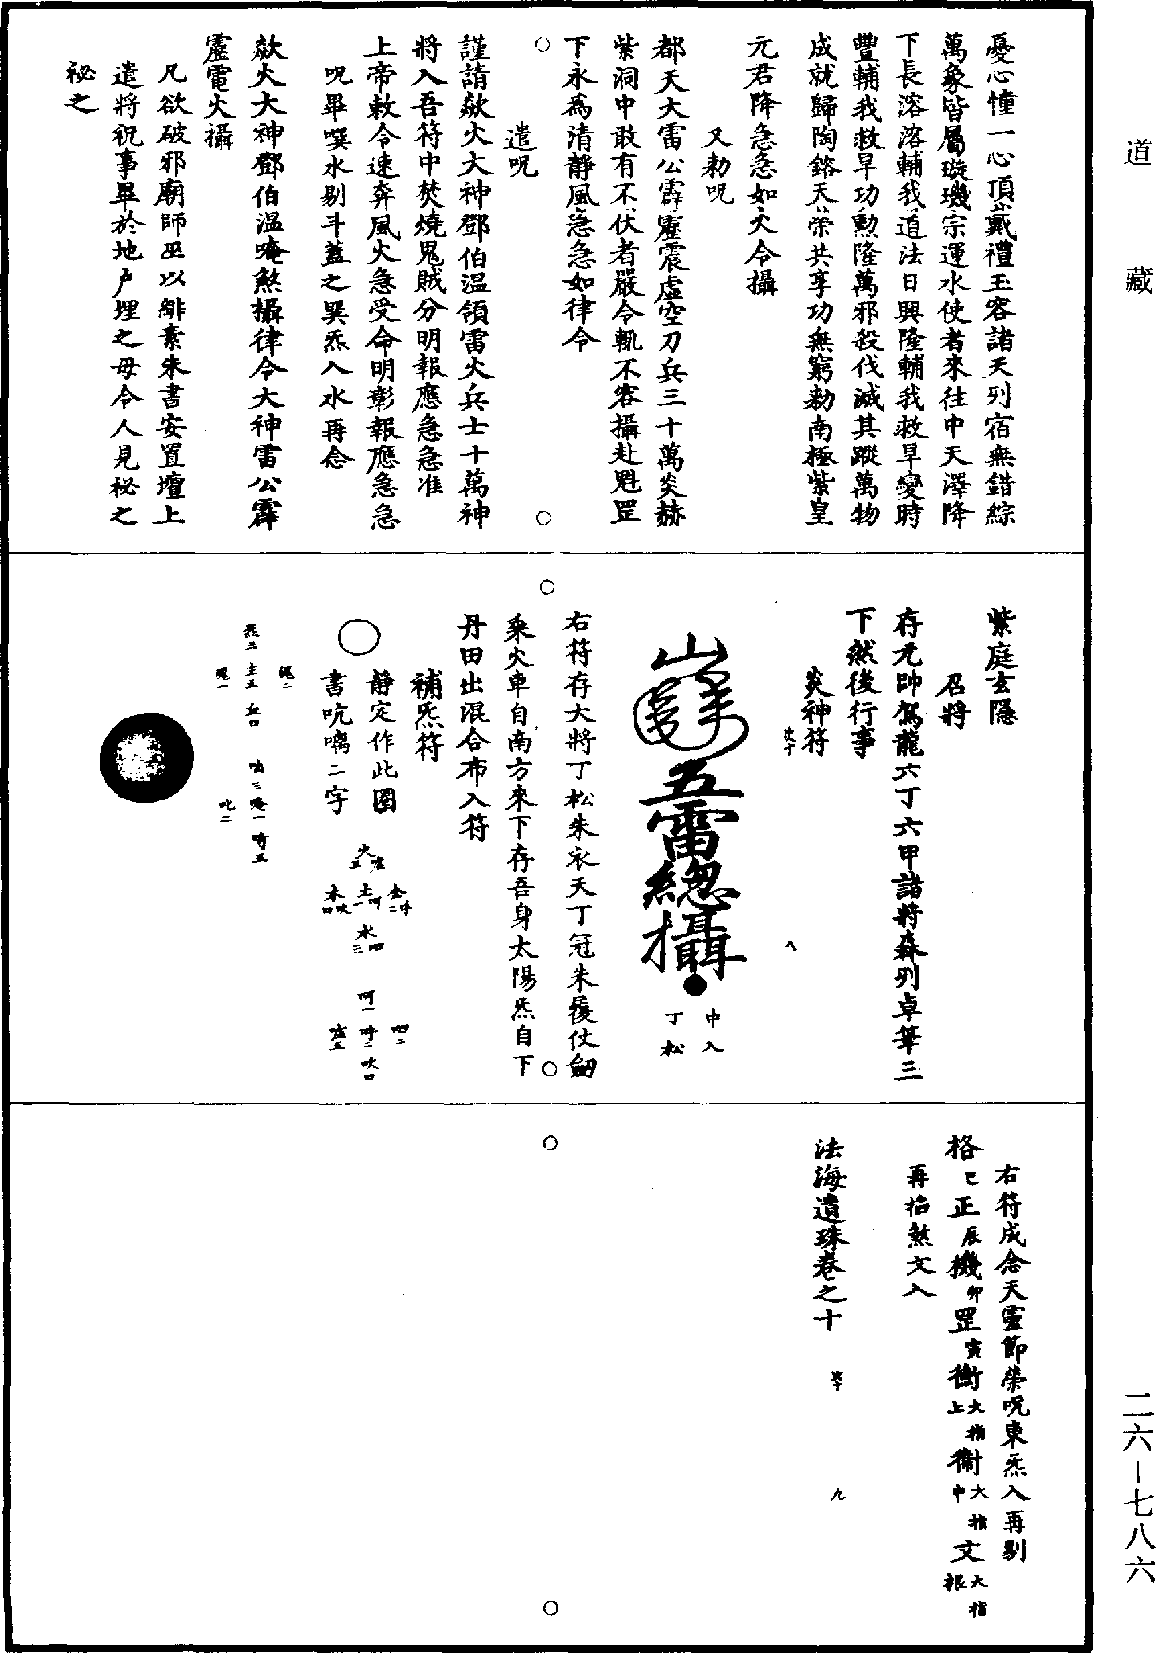 道藏
憂心憧一心頂戴禮玉容諸天列宿無錯綜
萬象皆屬璇璣宗運水使者來往中天澤降
下長溶溶輔我道法日興隆輔我救旱變時
豐輔我救旱功勲隆萬邪殺伐滅其蹤萬物
成就歸陶鎔天榮共享功無窮勑南極紫皇
元君降急急如火令攝
又勑呪
都天大雷公霹靂震虛空刀兵三十萬炎赫
紫洞中敢有不伏者嚴令軌不容攝赴魁罡
下永爲清靜風急急如律令
遣呪
謹請歘火大神鄧伯温領雷火兵士十萬神
將入吾符中焚燒鬼賊分明報應急急准
上帝敕令速奔風火急受命明彰報應急急
呪畢噀水剔斗蓋之巽炁入水再念
歘火大神鄧伯温唵煞攝律令大神雷公霹
靂電火攝
凡欲破邪廟師巫以緋素朱書安置壇上
遣將祝事畢於地户埋之毋令人見秘之
秘之
紫庭玄隱
召將
存元帥駕龍六丁六甲諸將森列卓筆三
下然後行事
炎神符
效十
八
五雷總攝
中入
丁松
右符存大將丁松朱衣天丁冠朱履仗劒
乘火車自南方來下存吾身太陽炁自下
丹田出混合布入符
補炁符
静定作此圈
書吭𠻗二字
右符成念天靈節榮呪東炁入再剔
格巳正辰機卯罡寅衝大指上衝大指中文大指根
再掐煞文入
法海遺珠卷之十
效十
九
二六—七八六